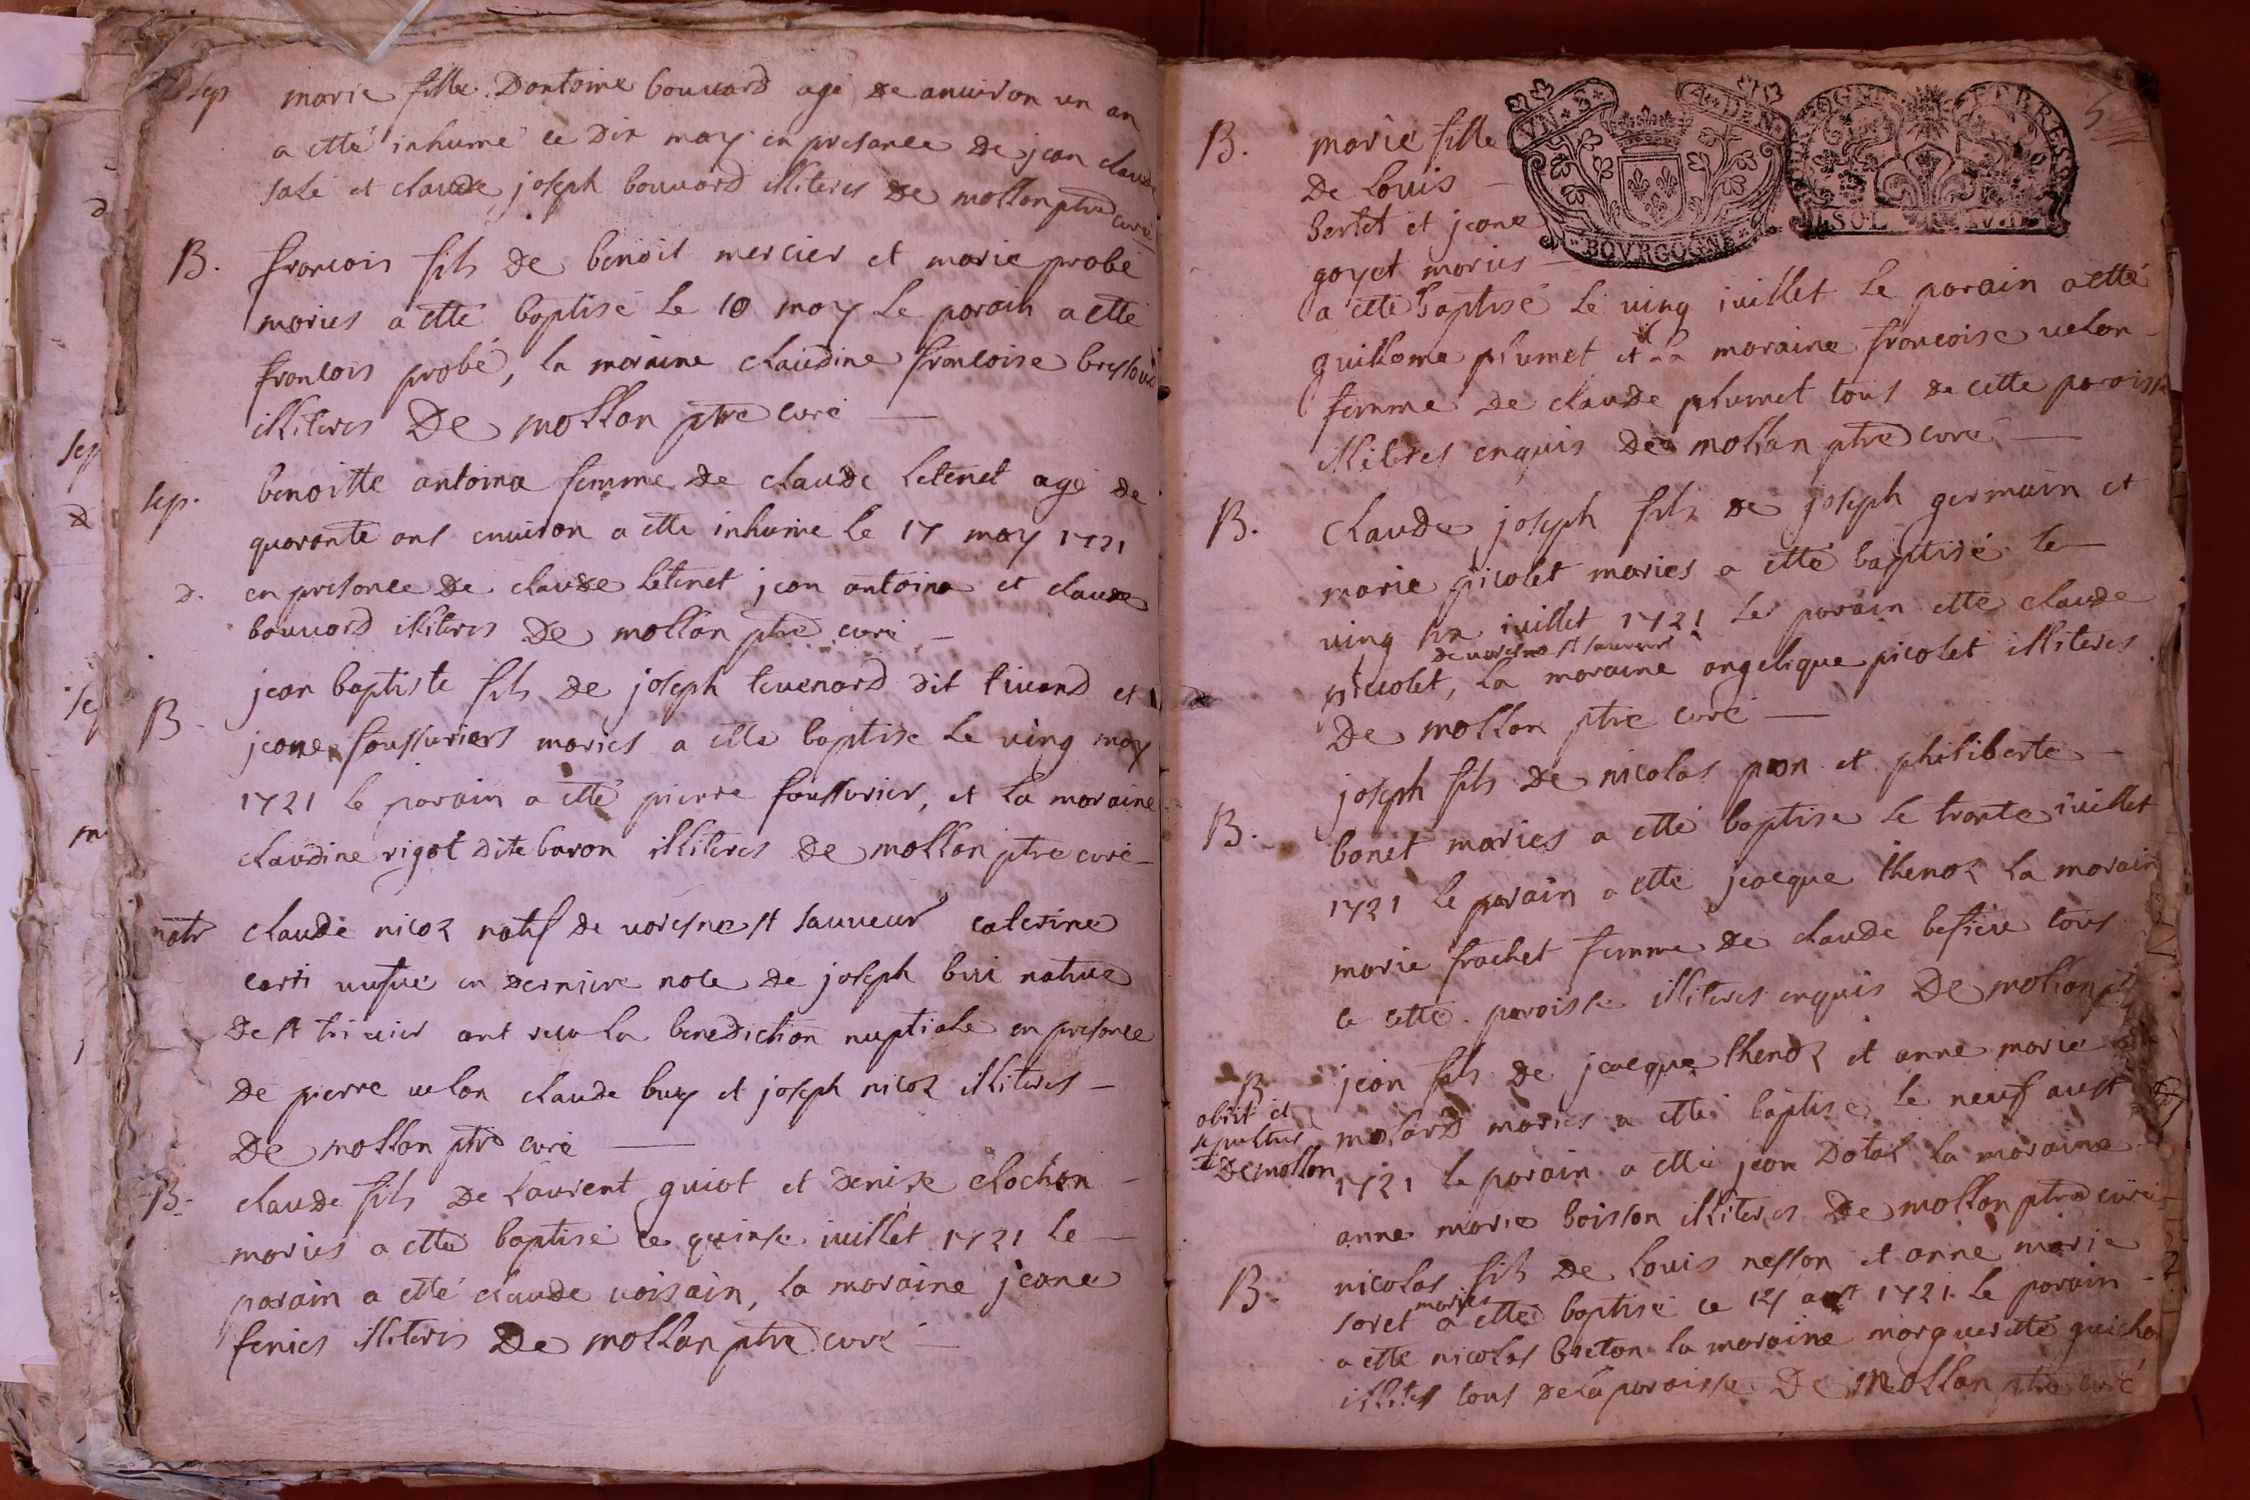 sep marie fille Dantoine bouuard agé de anuiron un an
a etté inhumé ce dix may en presance de jean claude
salé et claude joseph bouuard illiteres De mollon ptre curé
B. francois fils de benoit mercier et marie probé
maries a etté baptisé le 10 may le parain a etté
francois probé, la maraine claudine francoise
illiteres De mollon ptre curé
sep. benoitte antoina femme de claude letenet agé de
quarante ans enuiron a etté inhumé le 17 may 1721
D. en presance de claude letenet jean antoina et claude
bouuard illiteres De mollon ptre curé
B jean baptiste fils de joseph teuenard dit tiuand et
jeane foussuriers maries a etté baptisé le ving may
1721 le parain a etté pierre foussurier, et la maraine
claudine rigot dite baron illiteres De mollon ptre curé
claude nicoz natif de uaresne st sauueur caterine
carti uufue en derniere noce de joseph bui natiue
De st triuier ont receu la benediction nuptiale en presance
De pierre uelon claude buy et joseph nicoz illiteres
De mollon ptre curé
B. claude fils De laurent guiot et denise clochon
maries a etté baptisé ce quinse iuillet 1721 le
parain a etté claude uoisain, la maraine jeane
fenies illiteres De mollon ptre curé
5
VN 4 DEN
BOVRGOGNE
B. marie fille
De louis
bertet et jeane
goyet maries
a etté baptisé le ving iuillet le parain a etté
guillome plumet et la maraine francoise uelon
femme de claude plumet tous de cette paroisse
illiteres enquis De mollon ptre curé
B. claude joseph fils de joseph germain et
marie picolet maries a etté baptisé le
ving un iuillet 1721 le parain etté claude
de uaresne st sauueur
picolet, la maraine angelique picolet illiteres
De mollon ptre curé
B. joseph fils de nicolas pon et philiberte
bonet maries a etté baptisé le trante iuillet
1721 le parain a etté jacque thenoz la marain
marie frachet femme de claude besseu tous
ce cette paroisse illiteres enquis De mollon
B jean fils de jacque thenoz et anne marie
obiit et sepultus
De mollon
molard maries a etté baptisé le neuf aust
1721 le parain a etté jean Dotal la maraine
anne marie boisson illiteres De mollon ptre curé
B. nicolas fils de louis nesson et anne marie
maries
soret a etté baptisé ce 14 aust 1721 le parain
a etté nicolas breton la maraine marguerite
illites tous de la paroisse De mollon ptre curé